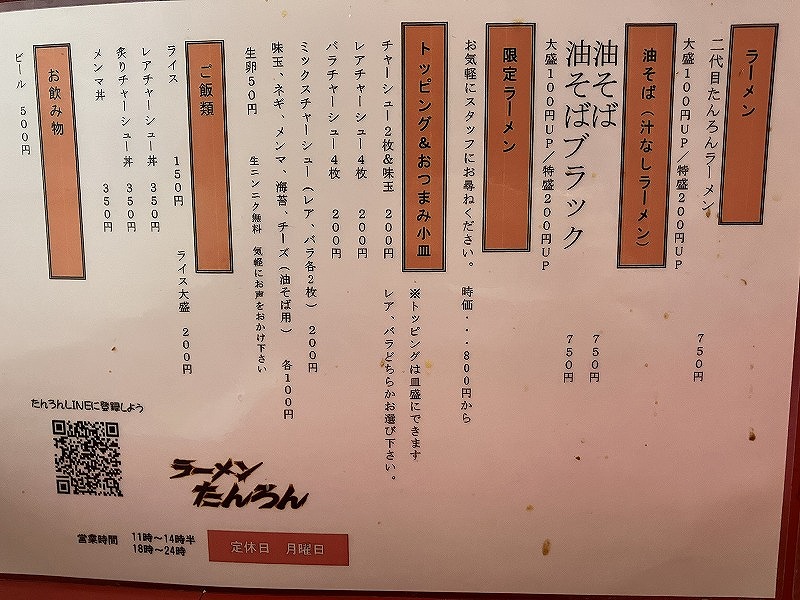 ラーメン
二代目たんろんラーメン 750円
大盛100円UP／特盛200円UP
油そば（汁なしラーメン）
油そば 750円
油そばブラック 750円
大盛100円UP／特盛200円UP
限定ラーメン
お気軽にスタッフにお尋ねください。 時価・・・800円から
トッピング＆おつまみ小皿
※トッピングは皿盛にできます
チャーシュー2枚＆味玉 200円 レア、バラどちらかお選び下さい。
レアチャーシュー4枚 200円
バラチャーシュー4枚 200円
ミックスチャーシュー（レア、バラ各2枚） 200円
味玉、ネギ、メンマ、海苔、チーズ（油そば用） 各100円
生卵50円 生ニンニク無料 気軽にお声をおかけ下さい
ご飯類
ライス 150円 ライス大盛 200円
レアチャーシュー丼 350円
炙りチャーシュー丼 350円
メンマ丼 350円
お飲み物
ビール 500円
たんろんLINEに登録しよう
ラーメン
たんろん
営業時間 11時～14時半
18時～24時
定休日 月曜日